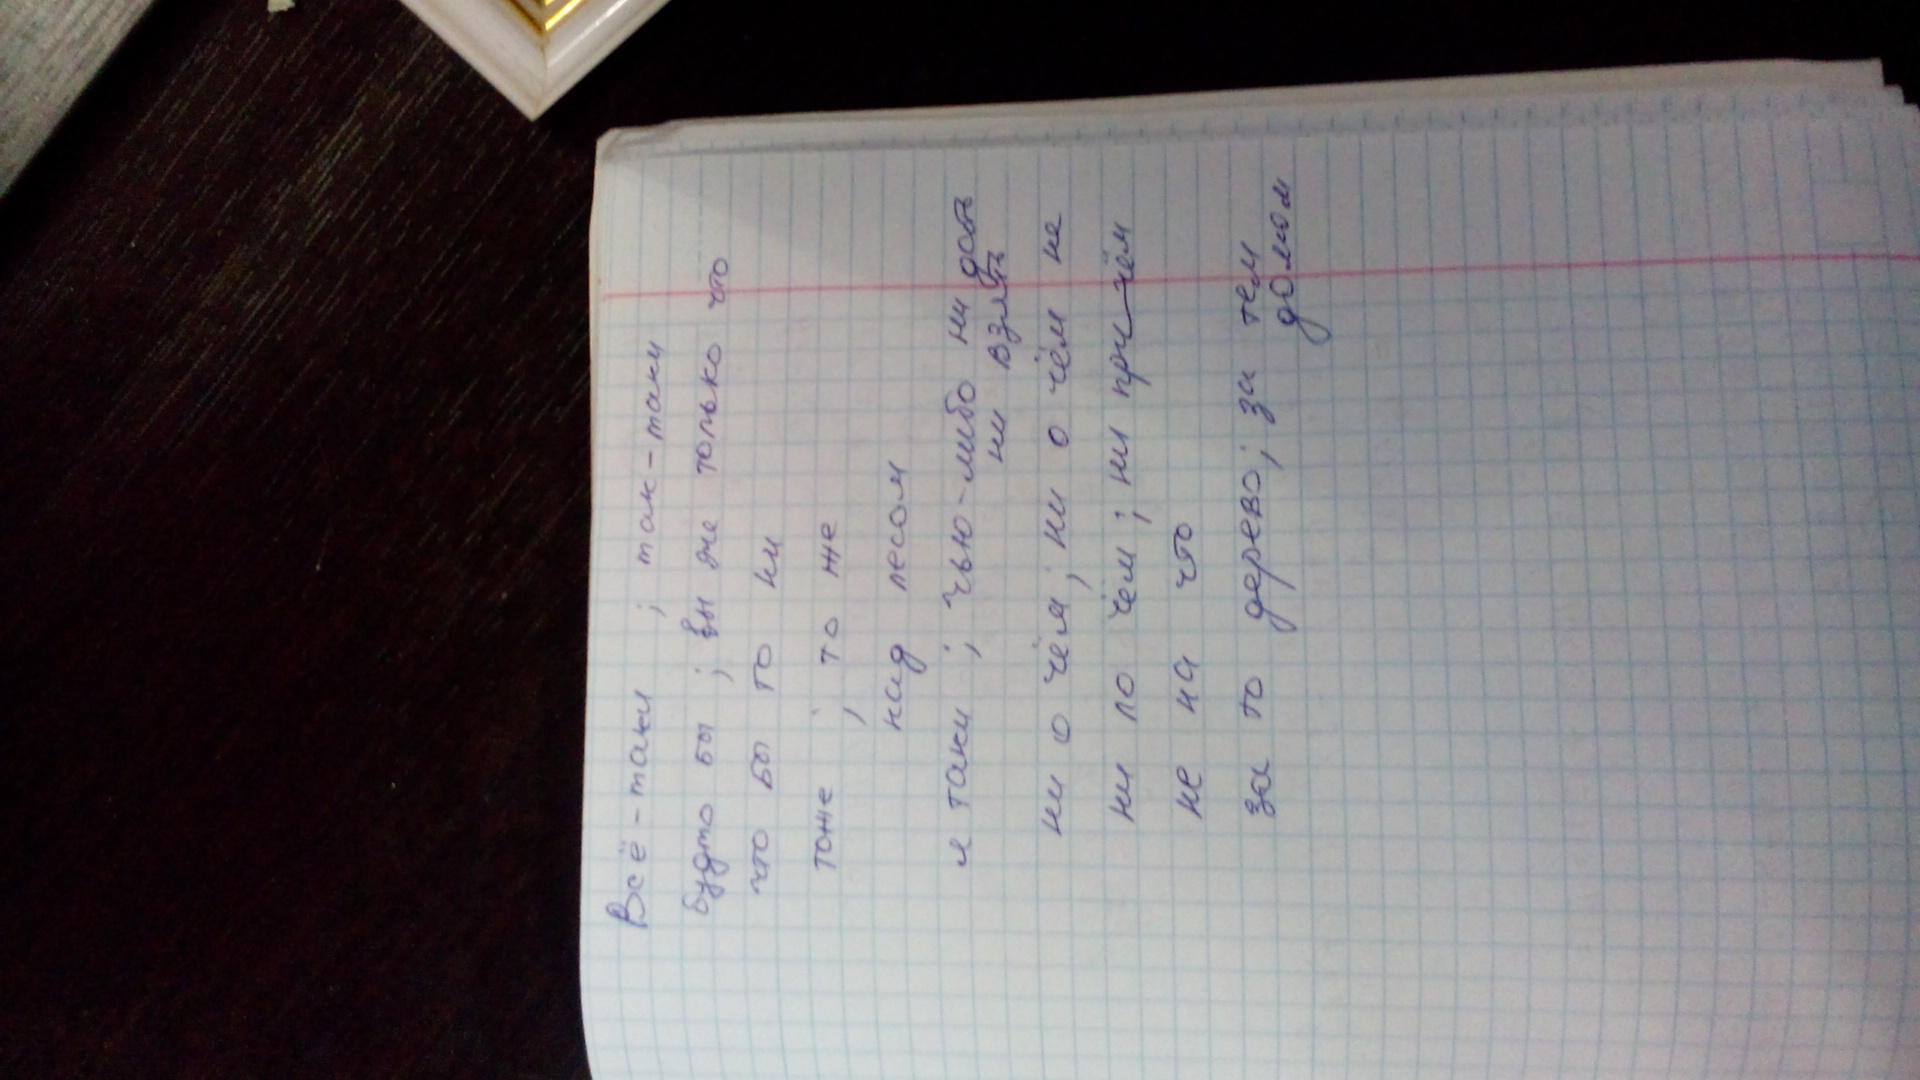 Всё-таки ; так-таки
будто бы ; вы же только что
что бы то ни
тоже ; то же
над лесом
я таки ; чью-либо ни дать
ни взять
ни о чём ; ни о чём не
ни по чём ; ни при чём
не на что
за то дерево ; за тем
домом